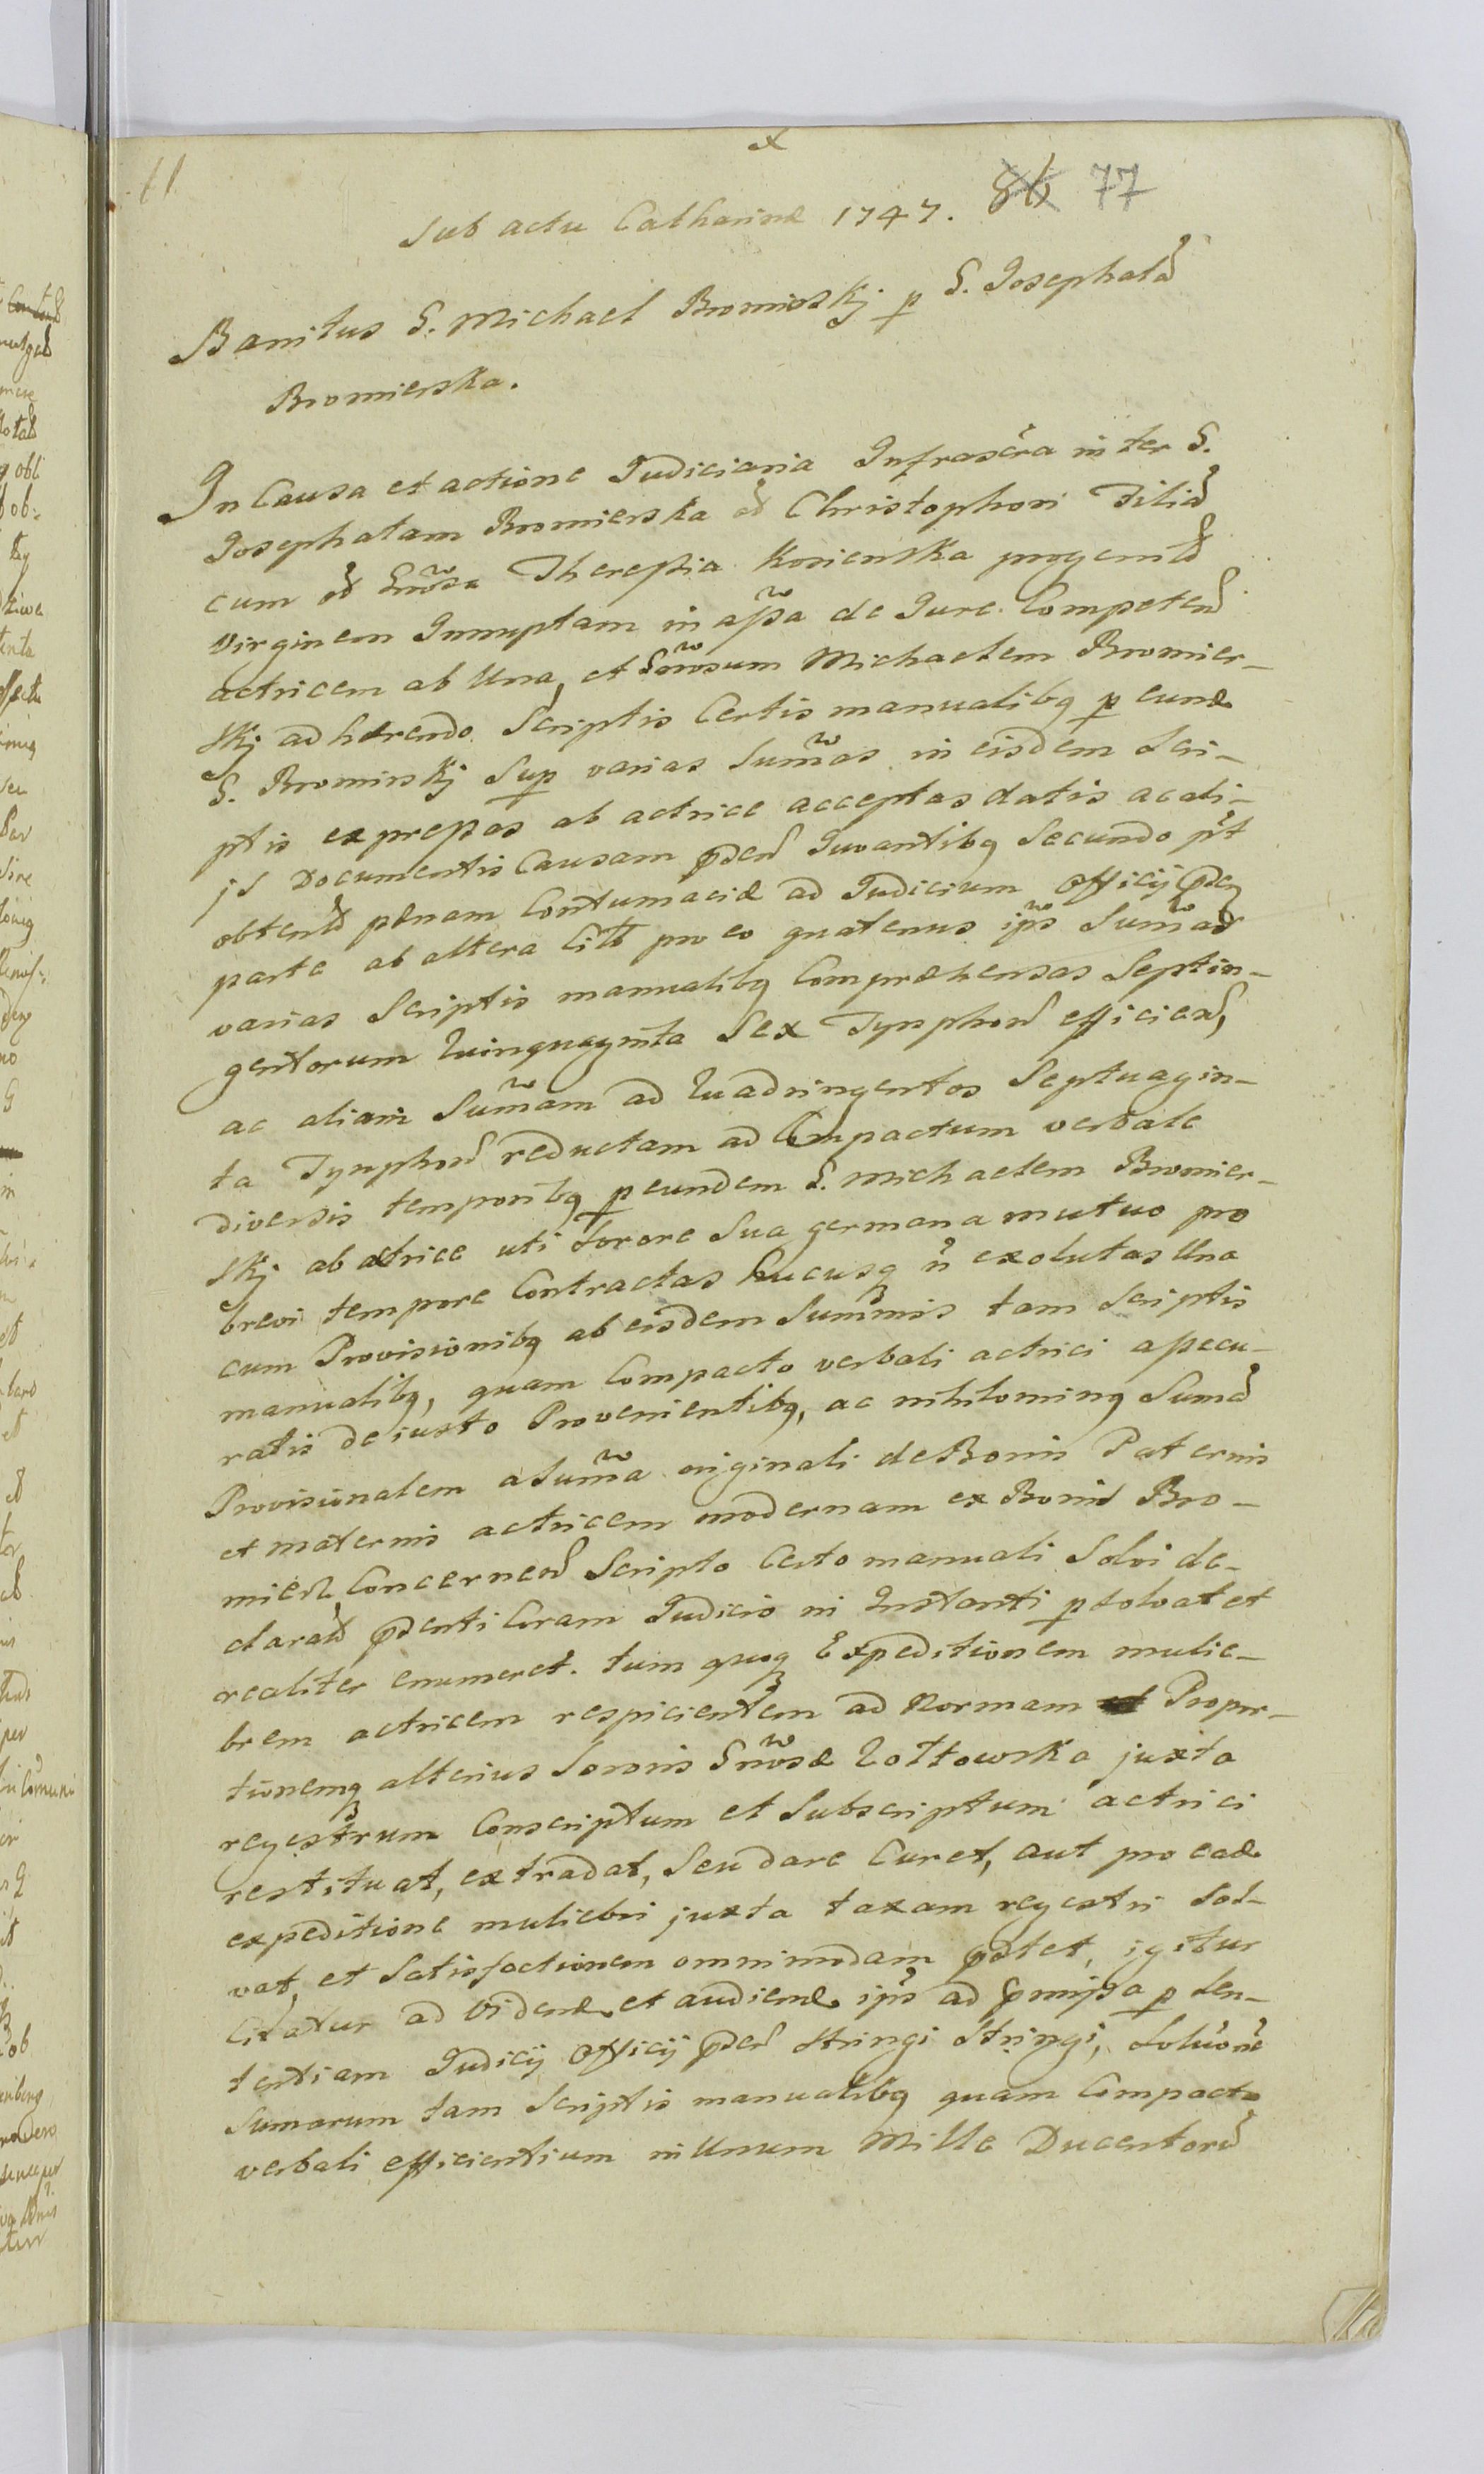 x
86 77
Sub actu Catharinæ 1747.
Banitus G. Michael Bromirskj p G. Josephatã
Bromierska.
In Causa et actione Judiciaria Infrascra inter G.
Josephatam Bromierska od Christophori Filiã
cum od Gnõsa Theressia Kosienska progenitã
Virginem Innuptam in assa de Jure Competenť
actricem ab Una, et Gnosum Michaelem Bromier-
skj adhærendo Scriptis Certis manualibq p eund
G. Bromirskj Sup varias Sumas in eisdem Scri-
ptis expressas ab actrice acceptas datis ac ali-
js Documentis Causam pden Juvantibq Secundo prt
obtentã pænam Contumaciæ ad Judicium Officij pden
parte ab altera Citt pro eo quatenus ips Sumas
varias Scriptis manualibq Compræhensas Septin-
gentorum Quinquaginta Sex Tynphon efficien,
ac aliam Sumam ad Quadringentos Septuagin-
ta Tynphon reductam ad Compactum verbale
diversis temporibq p eundem G. Michaelem Bromier-
skj ab actrice uti Sorore Sua germana mutuo pro
brevi tempore Contractas hucusq n exolutas Una
cum Provisionibq ab eisdem Summis tam Scriptis
manualibq, quam Compacto verbali actrici assecu-
ratis de iusto Provenientibq, ac nihilominq Sumã
Provisionalem a Suma originali de Bonis Paternis
et maternis actricem modernam ex Bonis Bro-
mier Concernen Scripto Certo manuali Solvi de-
claratã pdenti Coram Judicio in Instanti psolvat et
realiter enumeret. tum quoq Expeditionem mulie-
brem actricem respicientem ad Normam Propor-
tionemq alterius Sororis Gnosæ Zołtowska juxta
regestrum Conscriptum et Subscriptum actrici
restituat, extradat, Seu dare Curet, aut pro ead
expeditione muliebri juxta taxam regestri Sol-
vat, et Satisfactionem omnimodam pstet, igitur
Citatur ad Videnď et audienď ips ad pmissa p Sen-
tentiam Judicij Officij pden Stringi Stringi, Solutione
Sumarum tam Scriptis manualibq quam Compacto
verbali efficientium in Unum Mille Ducentorũ